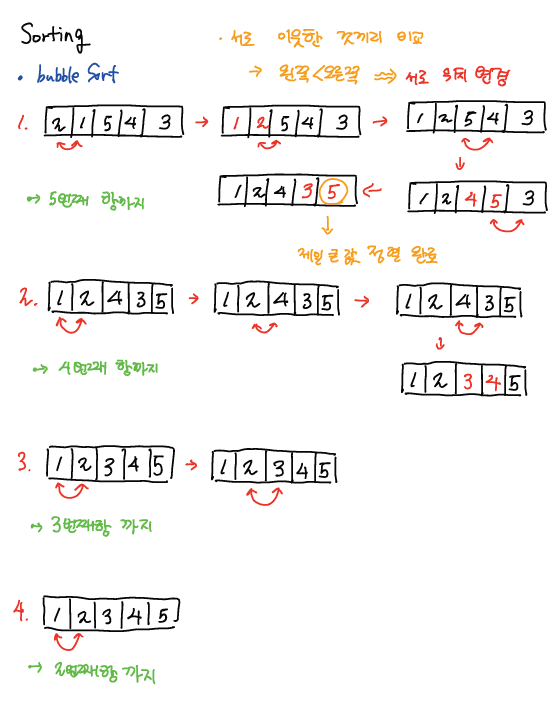 Sorting
• bubble Sort
· 서로 이웃한 것끼리 비교
→ 왼쪽<오른쪽 ⇒ 서로 위치 변경
1. 2 1 5 4 3 → 1 2 5 4 3 → 1 2 5 4 3
↓
1 2 4 3 5 ← 1 2 4 5 3
→ 5번째 항까지
↓
제일 큰 값 정렬 완료
2. 1 2 4 3 5 → 1 2 4 3 5 → 1 2 4 3 5
↓
→ 4번째 항까지
1 2 3 4 5
3. 1 2 3 4 5 → 1 2 3 4 5
→ 3번째항 까지
4. 1 2 3 4 5
→ 2번째항 까지